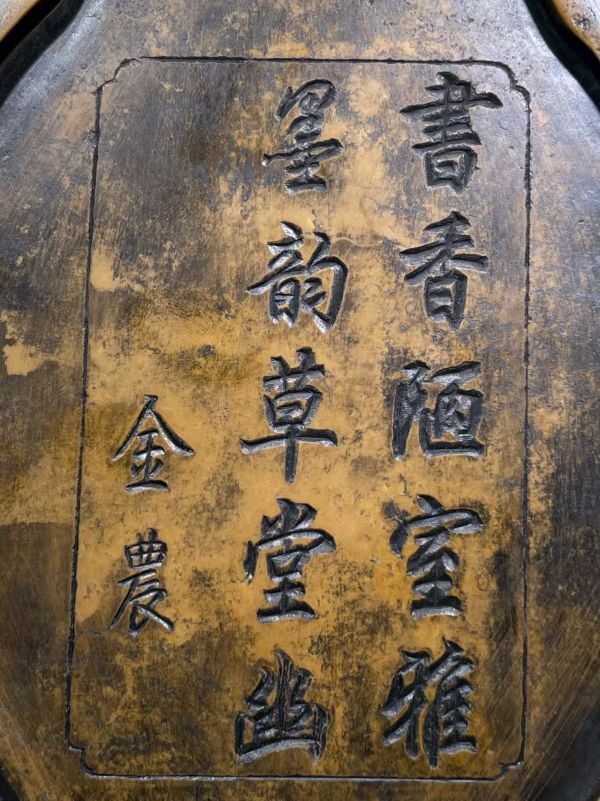 書香陋室雅
墨韵草堂幽
金農